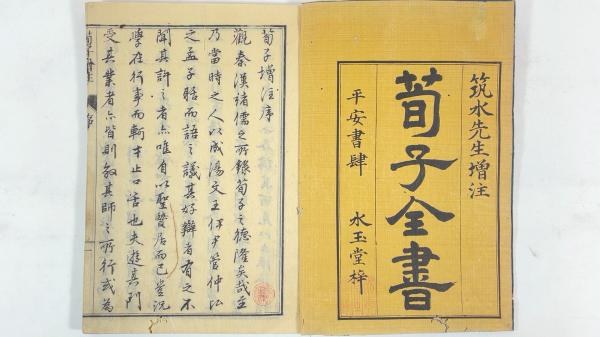 筑水先生增注
荀子全書
平安書肆 水玉堂梓
荀子增注序
觀秦漢諸儒之所錄荀子之德隆矣哉至
乃當時之人以成湯文王伊尹管仲比
之孟子 而語之議其好辯者有之不
聞其許之者亦唯自以聖賢居而已豈況
學在行事而軻 止口舌也夫遊其門
受其業者亦皆則效其師之所行或為
荀子增注 序